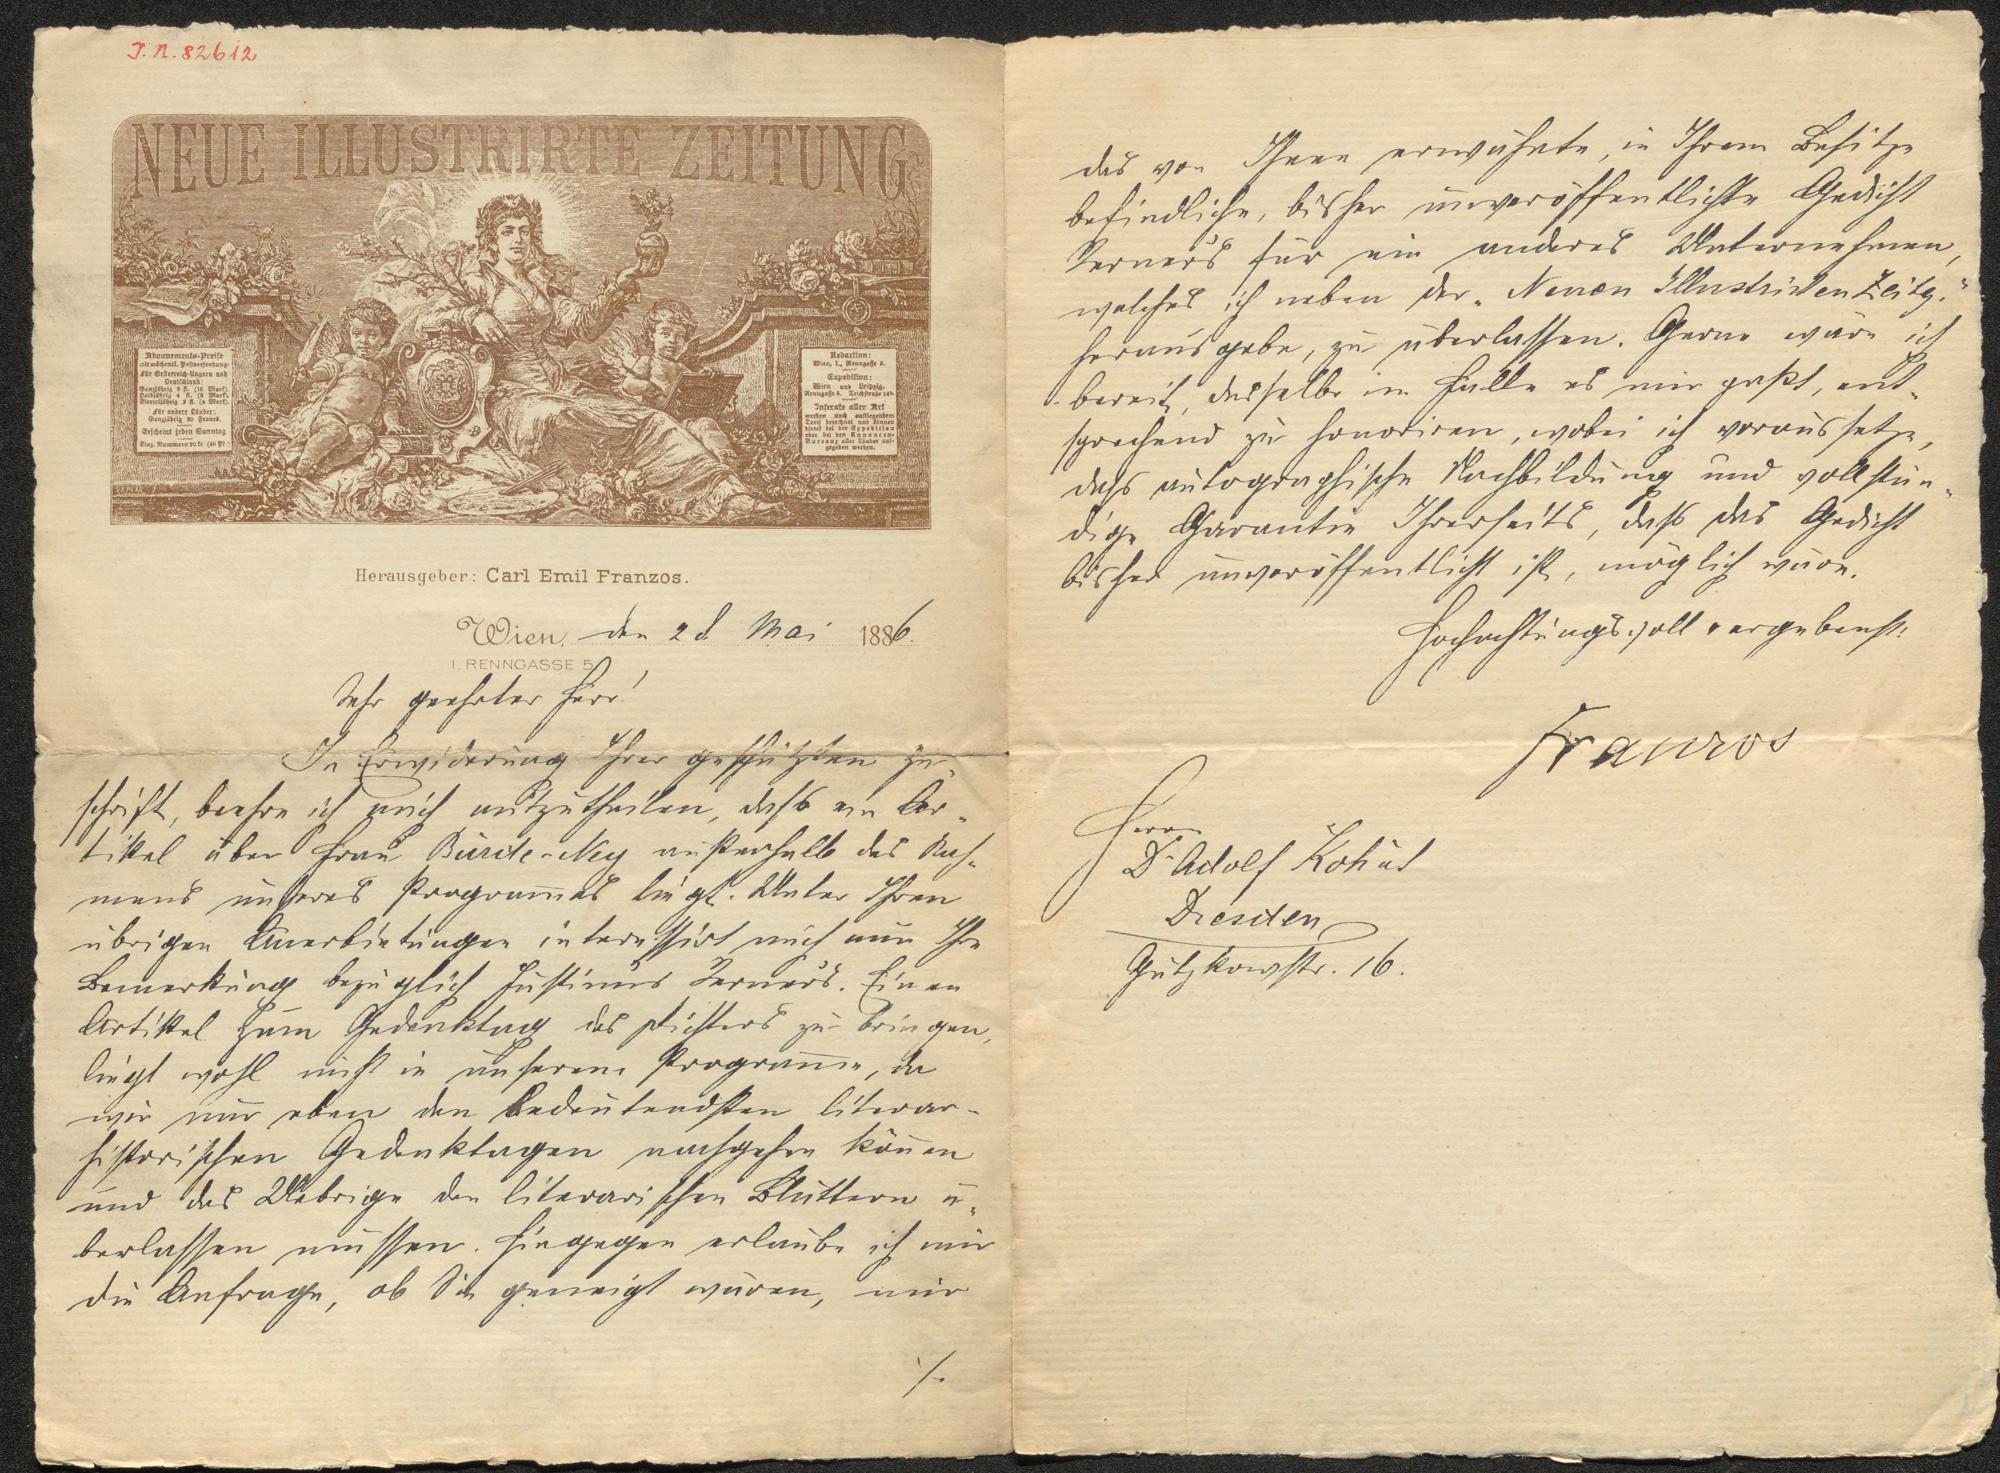 J. N. 82612
NEUE ILLUSTRIRTE ZEITUNG
Abonnements-Preise
mit wöchentl. Postversendung:
Für Österreich-Ungarn und
Deutschland:
Ganzjährig 8 fl. (16 Mark).
Halbjährig 4 fl. (8 Mark).
Vierteljährig 2 fl. (4 Mark).
Für andere Länder:
Ganzjährig 20 Francs.
Erscheint jeden Sonntag
Einz. Nummern 20 kr. (40 Pf.)
Redaction:
Wien, I., Renngasse 5.
Expedition:
Wien und Leipzig.
Renngasse 5. Teichstraße
Inserate aller Art
werden nach aufliegendem
Tarif berechnet und können
direct bei der Expedition
oder bei den Annoncen-
Bureaux aller Länder auf-
gegeben werden.
Herausgeber: Carl Emil Franzos.
Wien, den 28. Mai 1886.
I. RENNGASSE 5.
Sehr geehrter Herr!
In Erwiderung Ihrer geschätzten Zu-
schrift, beehre ich mich mitzutheilen, daß ein Ar-
tikel über Frau Bürde-Ney außerhalb des Rah-
mens unseres Programmes liegt. Unter Ihren
übrigen Anerbietungen interessirt mich nur Ihre
Bemerkung bezüglich Justinus Kerners. Einen
Artikel zum Gedenktag des Dichters zu bringen,
liegt wohl nicht in unserem Programme, da
wir nur eben den bedeutendsten literar-
historischen Gedenktagen nachgehen können
und das Uebrige den literarischen Blättern ü-
berlassen müssen. Hingegen erlaube ich mir
die Anfrage, ob Sie geneigt wären, mir
./.
das von Ihnen erwähnte, in Ihrem Besitze
befindliche, bisher unveröffentlichte Gedicht
Kerners für ein anderes Unternehmen,
welches ich neben der „Neuen Illustrirten Zeitg."
herausgebe, zu überlassen. Gerne wäre ich
bereit, dasselbe im Falle es mir paßt, ent-
sprechend zu honoriren, wobei ich voraussetze,
daß autographische Nachbildung und vollstän-
dige Garantie Ihrerseits, daß das Gedicht
bisher unveröffentlicht ist, möglich wäre.
Hochachtungsvoll ergebenst:
Franzos
Herrn
Dr Adolf Kohut
Dresden
Gutzkowstr. 16.